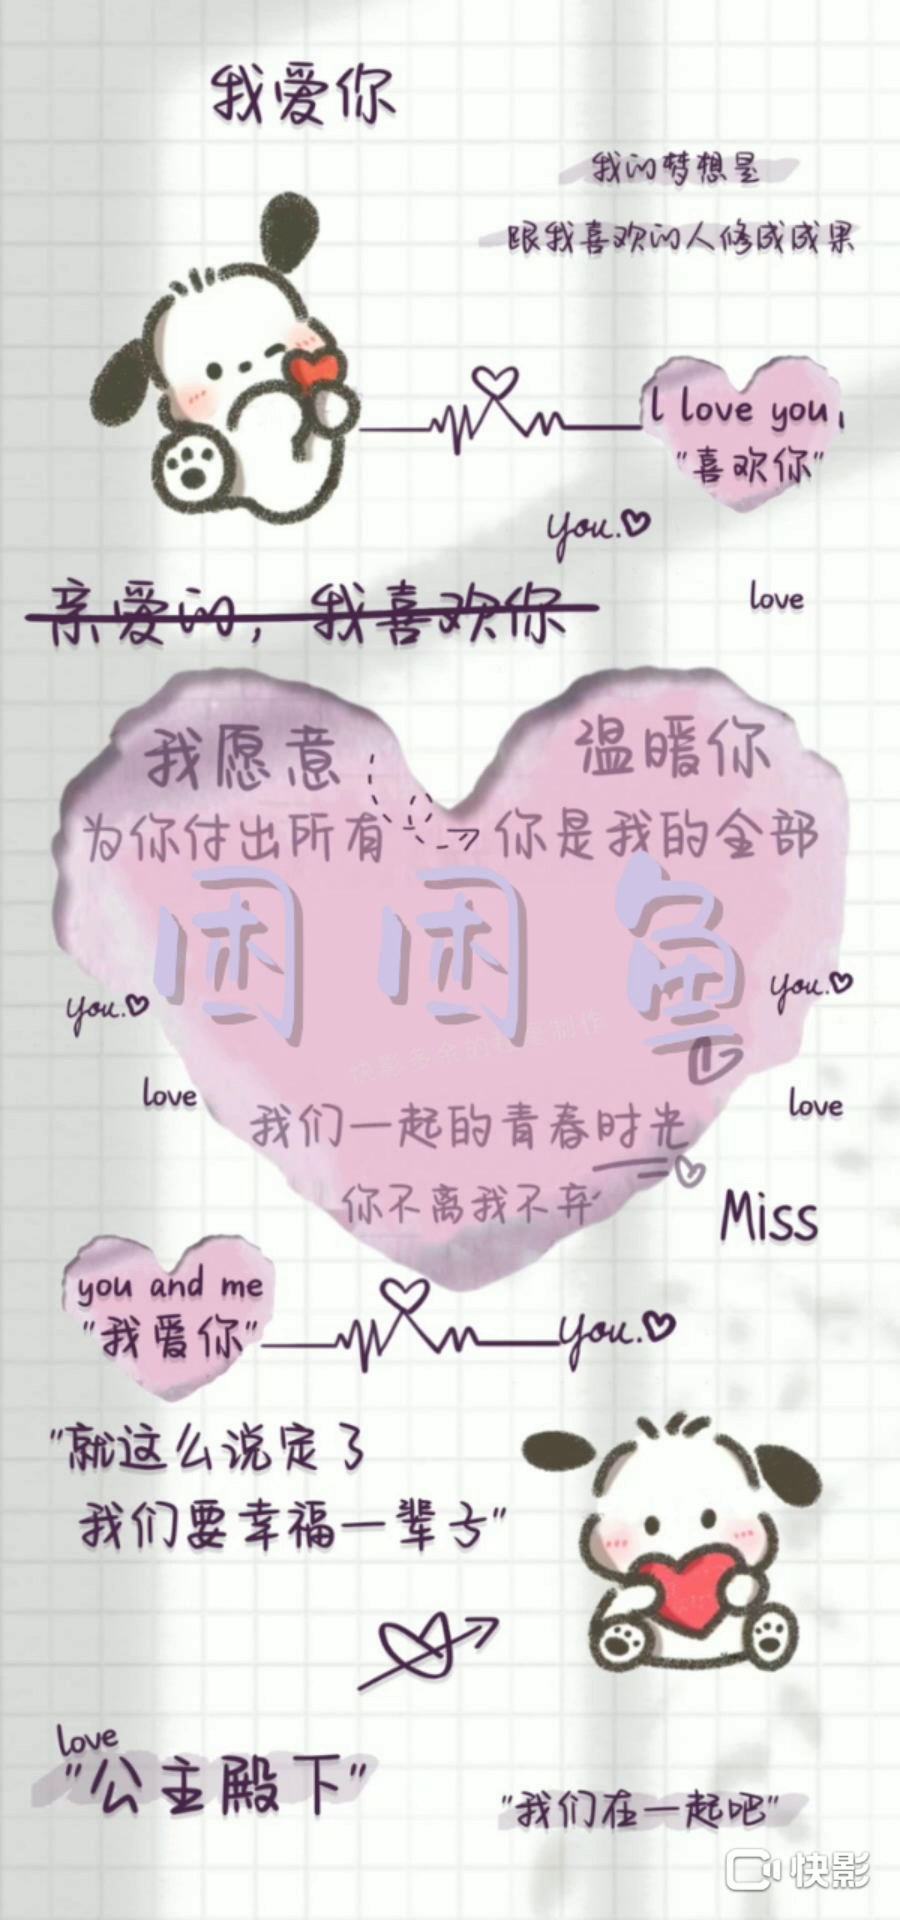 我爱你
我的梦想是
跟我喜欢的人修成成果
l love you,
"喜欢你"
you.
love
亲爱的，我喜欢你
我愿意
温暖你
为你付出所有
你是我的全部
困困鱼
you.
you.
love
love
我们一起的青春时光
你不离我不弃
Miss
you and me
"我爱你"
you.
"就这么说定了
我们要幸福一辈子"
love
"公主殿下"
"我们在一起吧"
快影